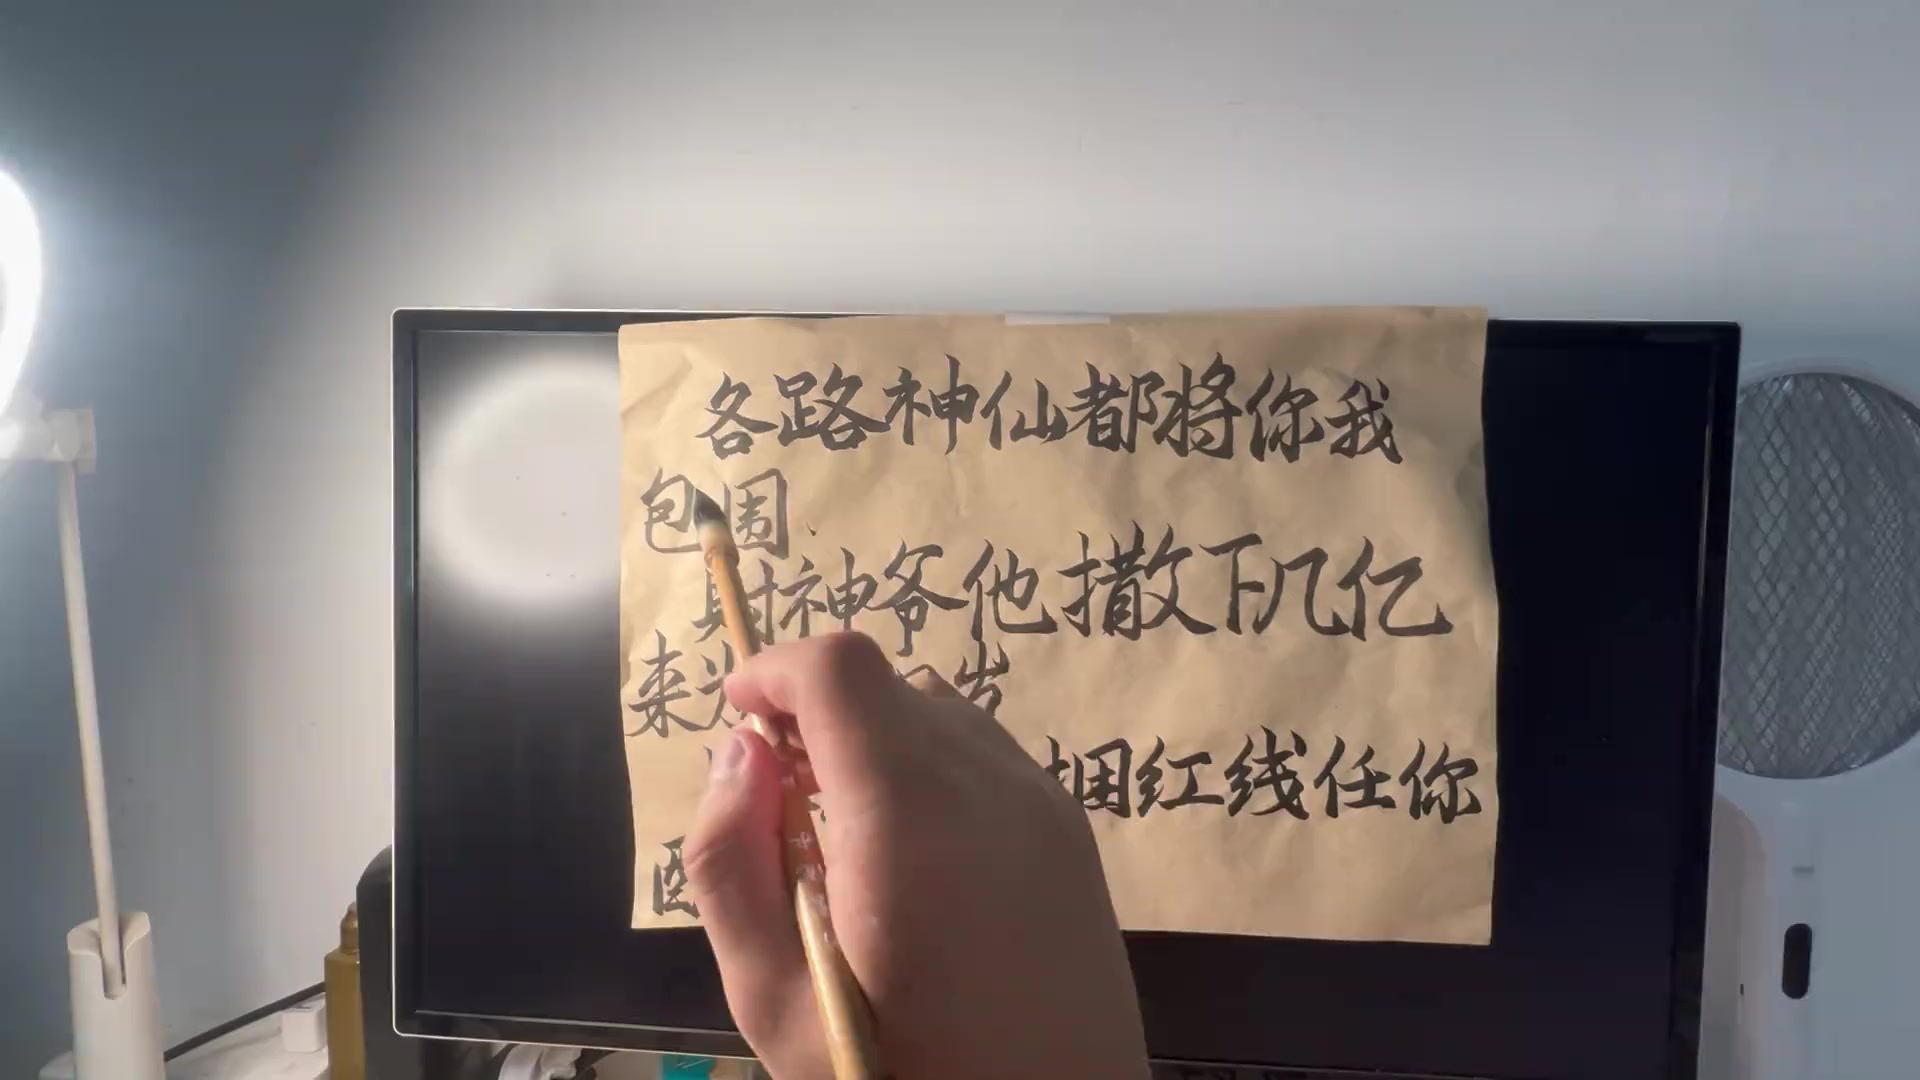 各路神仙都将你我
包围
财神爷他撒下几亿
来 岁
捆红线任你
配